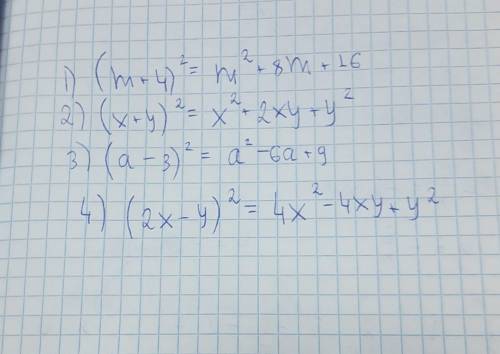 1) (m+4)² = m² + 8m + 16
2) (x+y)² = x² + 2xy + y²
3) (a - 3)² = a² - 6a + 9
4) (2x - y)² = 4x² - 4xy + y²